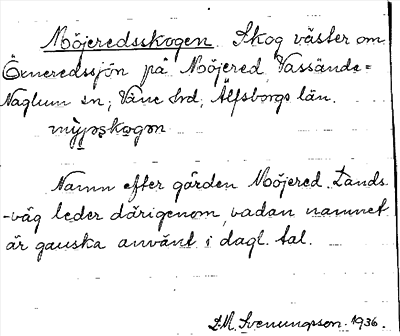 Nöjeredsskogen. Skog väster om
Öxneredssjön på Nöjered, Vassända=
Naglum sn; Väne hrd; Älfsborgs län.
Namn efter gården Nöjered. Lands
-väg leder därigenom, vadan namnet
är ganska använt i dagl. tal.
D.M. Svenungsson. 1936.